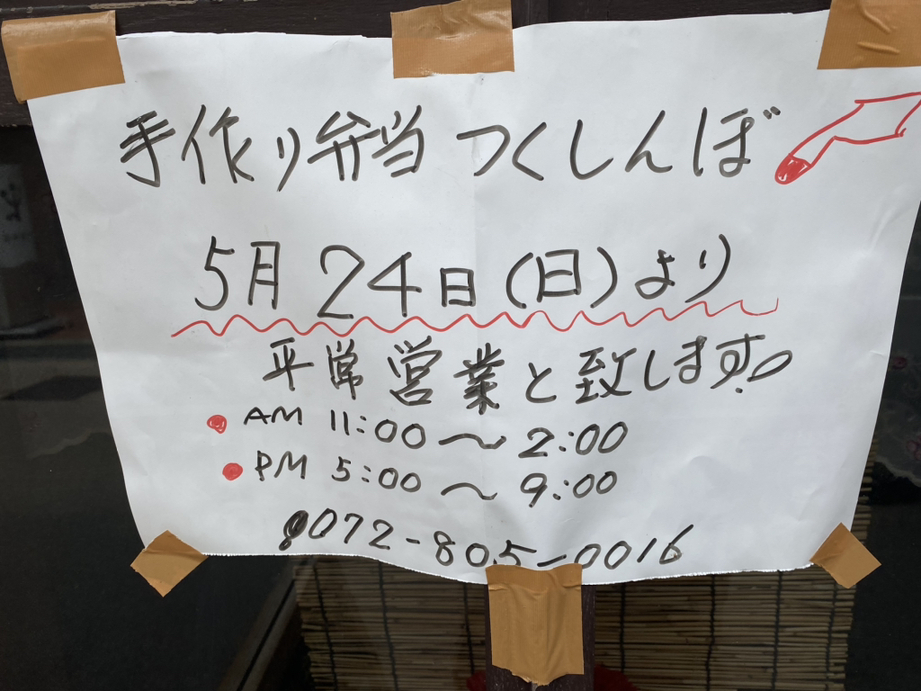 手作り弁当 つくしんぼ
5月 24日(日)より
平常営業と致します!
AM 11:00 〜 2:00
PM 5:00 〜 9:00
072-805-0016